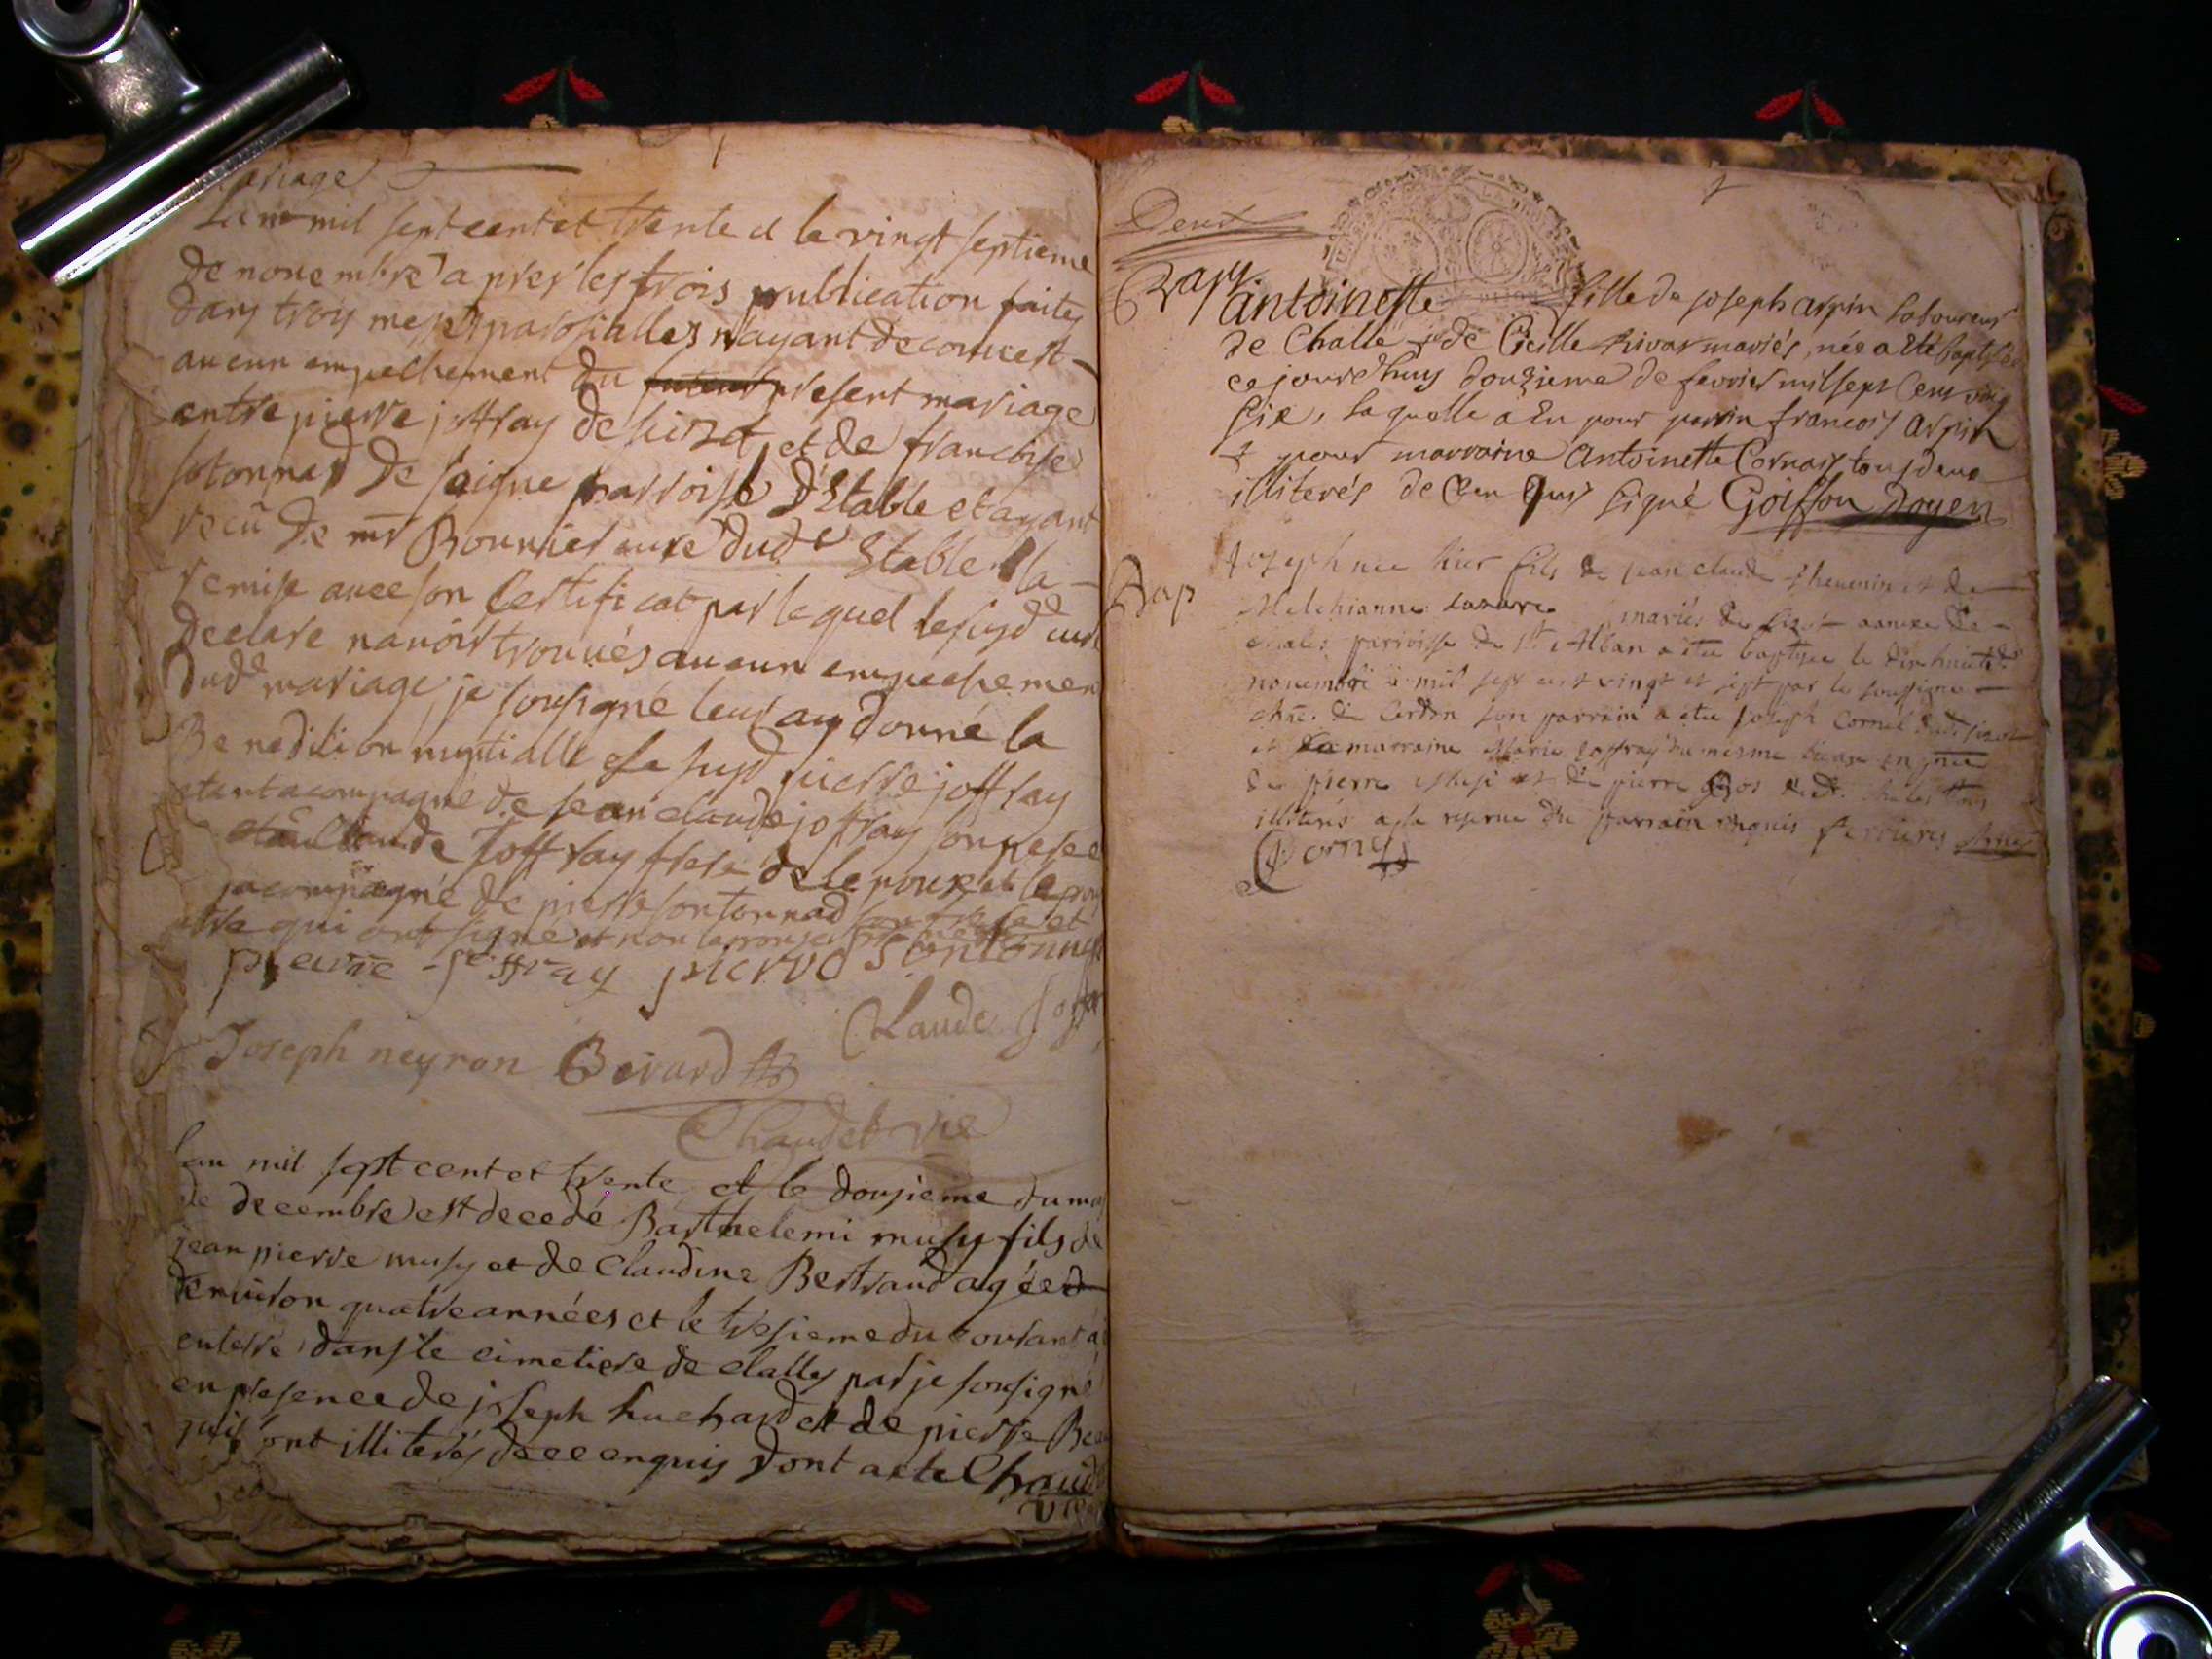 mariage
Lan mil sept cent et trente et le vingt septieme
de novembre apres les trois publication faites
dans trois messes parosialles n'ayant decouvert
aucun empechement du futeur present mariage
entre pierre joffray de et de francoise
sotonnad de parroisse d'Estable et ayant
recu de mr Bournier cure dudt Estable la
remise avec son Certificat par lequel le susd cure
declare n'avoir trouvés aucun empechemen
dudt mariage, je sousigné leur ay donné la
Benediction nuptialle le susd pierre joffray
etant acompagné de jean claude joffray son pere
Claude Joffray frere de le poux et
acompagné de pierre sontonnad son frere et
qui ont signé et non
pierre joffray pierre sontonna
Claude
Joseph neyron Berard
Chaudet vic
lan mil sept cent et trente et le dousieme du mo
de decembre est decedé Barthelemi musy fils de
jean pierre musy et de Claudine Bertrand agée
denviron quatre années et le tresieme du courant a
enterré dans le cimetiere de challes par je sousigné
en presence de joseph huchard et de pierre
ont illiterés de ce enquis dont acte Chaud
vic
Deux
Bap
antoinette fille de joseph arpin laboureur
de Challe et de Cecille Rivar mariés, née a été baptisée
ce jourdhuy douzieme de fevrier mil sept Cens ving
six, laquelle a Eu pour parrin francois arpin
& pour marraine Antoinette Cornas tous deux
illiterés de Ce enquis Signé Goiffon Doyen
Bap
Joseph née hier fils de jean claude thevenin et de
Melchianne Lazare mariés de annexe de
chales parroisse de St Alban a été baptisee le dix huict
novembre mil sept cent vingt et sept par le soussigné
de Cerdon son parrain a etee joseph Cornel
et sa marraine Marie joffray du mesme lieu en pnce
de pierre et de pierre
illiterés a la reserve du parrain enquis
Cornel